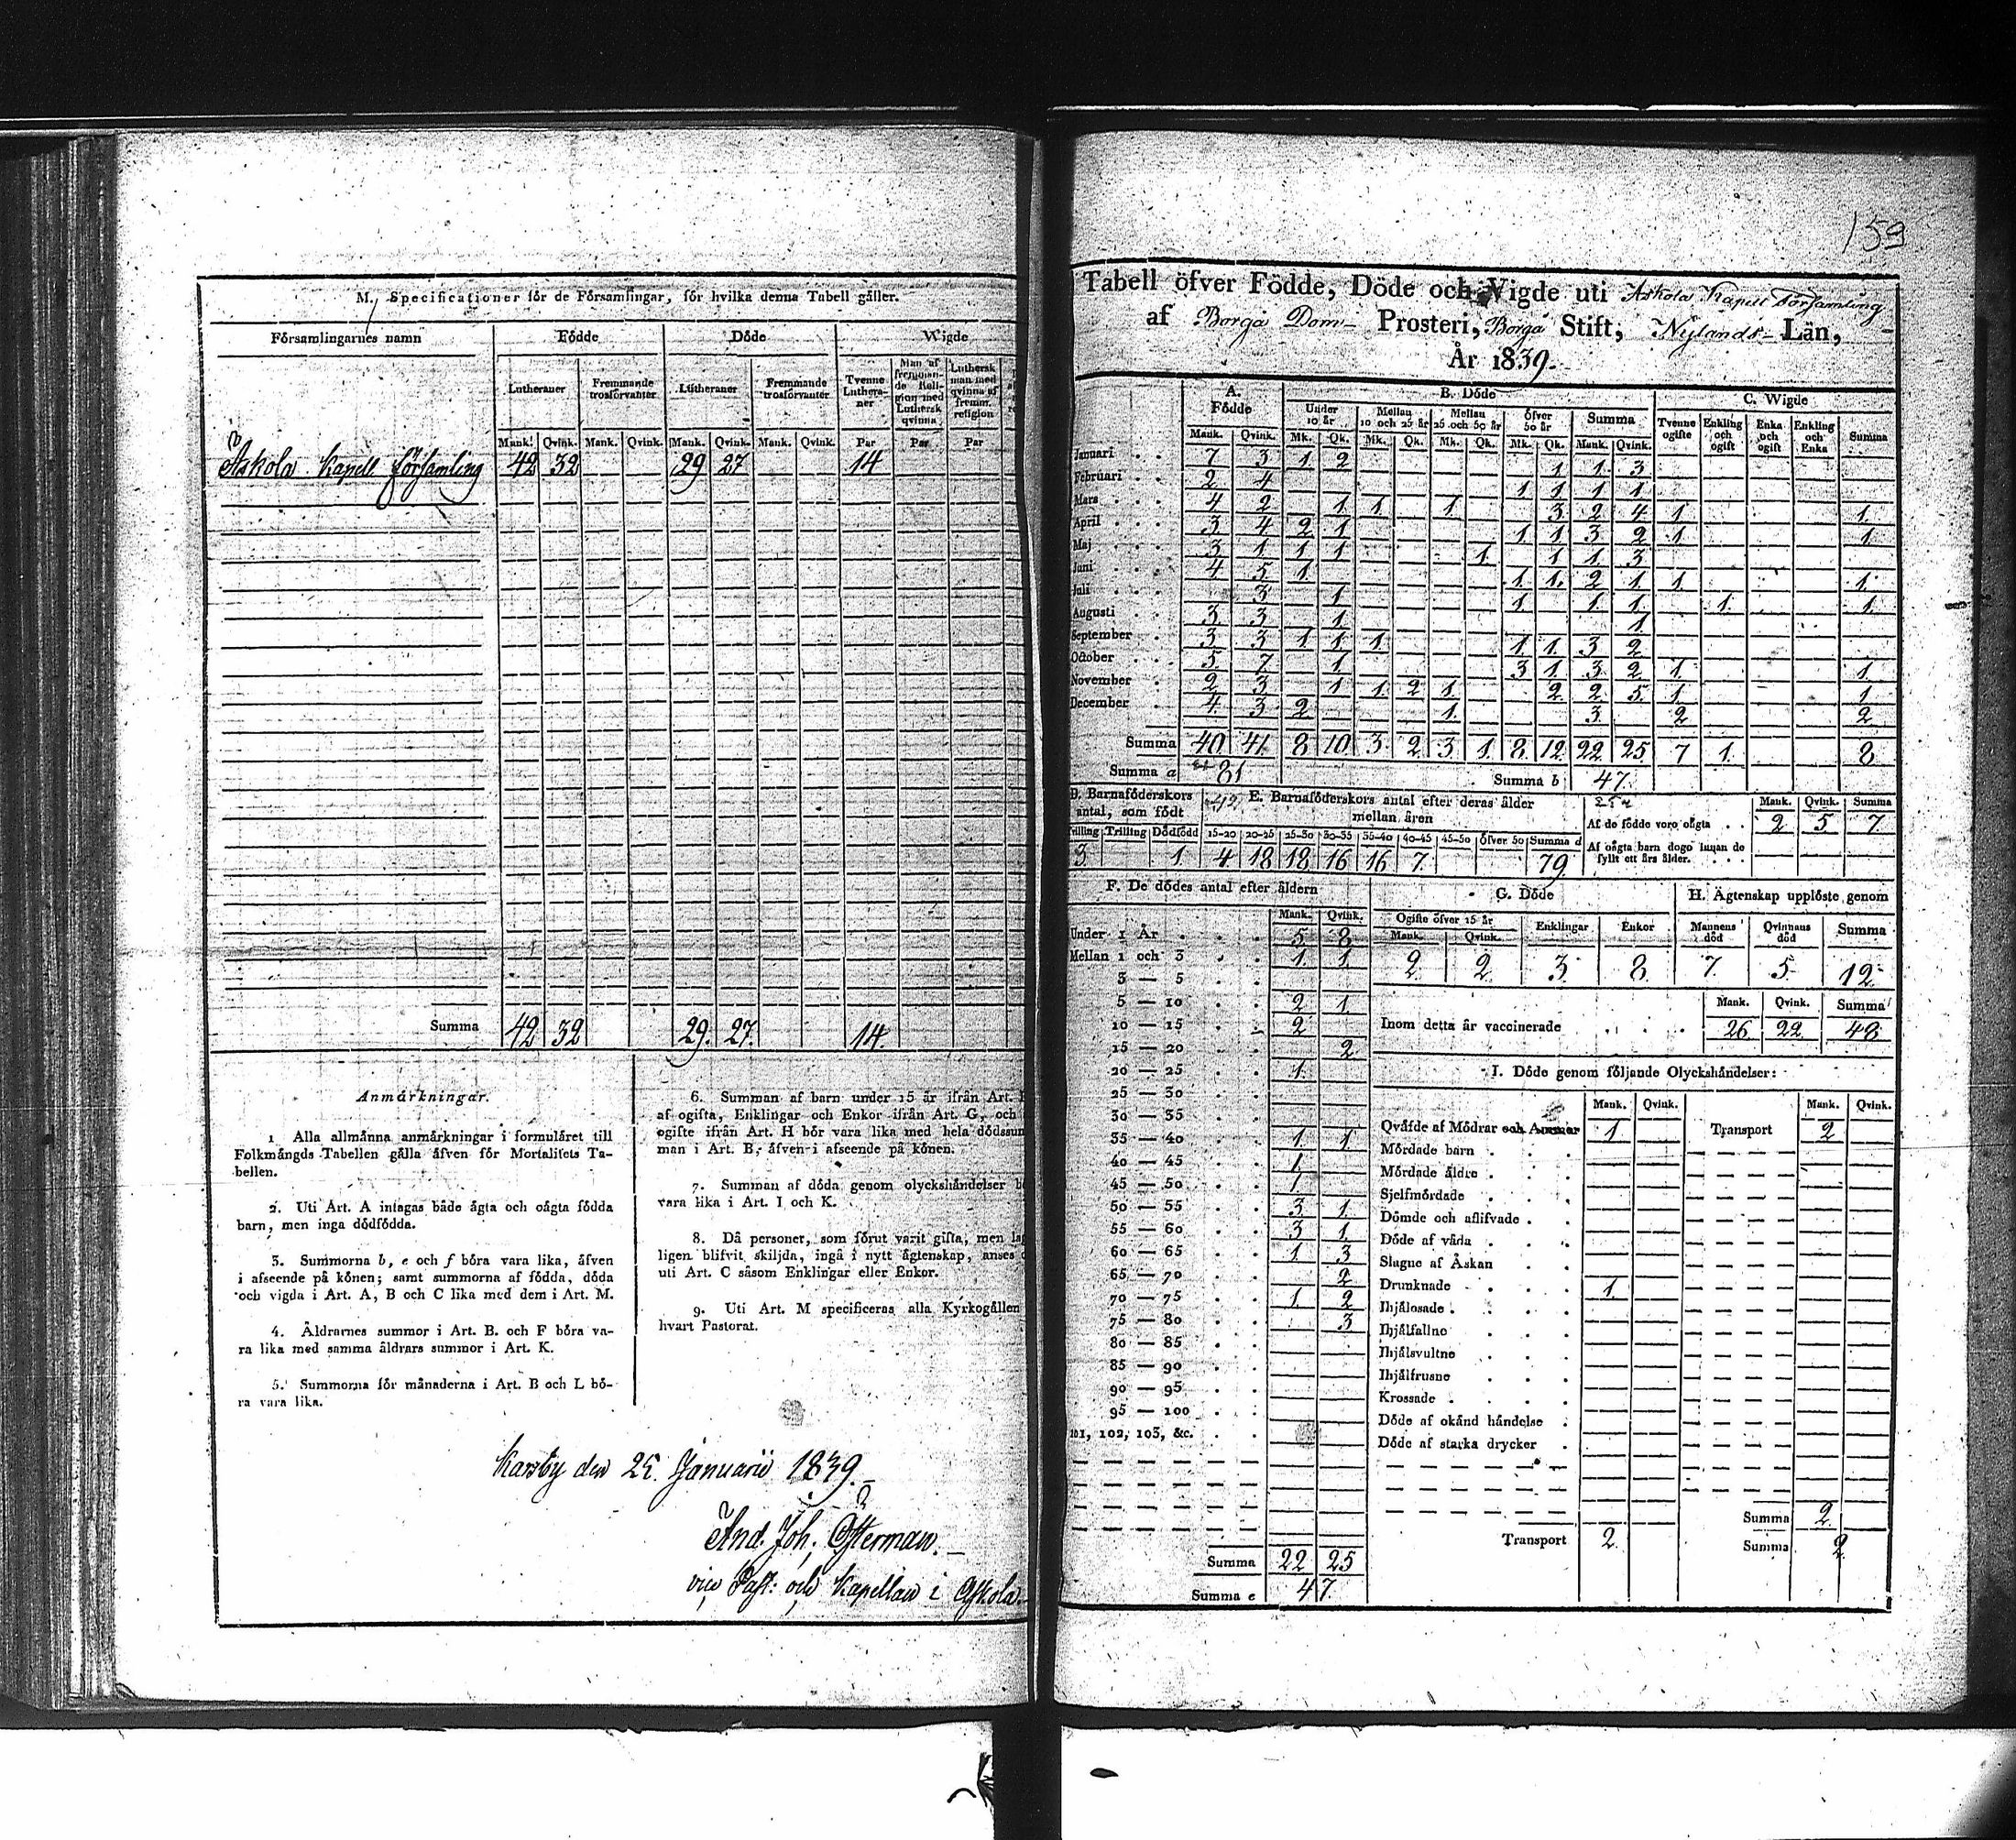 M. Specificationer för de Församlingar, för hvilka denna Tabell gäller.
Församlingarnes namn | Födde | Döde | Wigde
Lutheraner | Fremmande trosförvanter | Lutheraner | Fremmande trosförvanter | Tvenne Lutheraner | Man af fremmande Religion med Luthersk qvinna | Luthersk man med qvinna af fremm. religion
Mank. | Qvink. | Mank. | Qvink. | Mank. | Qvink. | Mank. | Qvink. | Par | Par | Par
Askola Kapell församling | 42 | 32 | 29 | 27 | 14
Summa | 42 | 32 | 29. | 27. | 14.
Anmärkningar.
1 Alla allmänna anmärkningar i formuläret till
Folkmängds Tabellen gälla äfven för Mortalitets Ta-
bellen.
2. Uti Art. A intagas både ägta och oägta födda
barn, men inga dödfödda.
3. Summorna b, e och f böra vara lika, äfven
i afseende på könen; samt summorna af födda, döda
och vigda i Art. A, B och C lika med dem i Art. M.
4. Åldrarnes summor i Art. B. och F böra va-
ra lika med samma åldrars summor i Art. K.
5. Summorna för månaderna i Art. B och L bö-
ra vara lika.
6. Summan af barn under 15 år ifrån Art.
af ogifta, Enklingar och Enkor ifrån Art. G, och
ogifte ifrån Art. H bör vara lika med hela dödssum
man i Art. B, äfven i afseende på könen.
7. Summan af döda genom olyckshändelser
vara lika i Art. I och K.
8. Då personer, som förut varit gifta, men
ligen blifvit skiljda, ingå i nytt ägtenskap, anses
uti Art. C såsom Enklingar eller Enkor.
9. Uti Art. M specificeras alla Kyrkogällen
hvart Pastorat.
Karsby den 25. Januarii 1839.
And. Joh. Österman.
vice Past: och Kapellan i Askola.
159
Tabell öfver Födde, Döde och Vigde uti Askola Kapell Församling
af Borgå Dom- Prosteri, Borgå Stift, Nylands- Län,
År 1839.
A. Födde | B. Döde | C. Wigde
Under 10 år | Mellan 10 och 25 år | Mellan 25 och 50 år | Öfver 50 år | Summa | Tvenne ogifte | Enkling och ogift | Enka och ogift | Enkling och Enka | Summa
Mank. | Qvink. | Mk. | Qk. | Mk. | Qk. | Mk. | Qk. | Mk. | Qk. | Mank. | Qvink.
Januari | 7 | 3 | 1 | 2 | 1 | 1 | 3
Februari | 2 | 4 | 1 | 1 | 1 | 1
Mars | 4 | 2 | 1 | 1 | 1 | 3 | 2 | 4 | 1 | 1
April | 3 | 4 | 2 | 1 | 1 | 1 | 3 | 2 | 1 | 1
Maj | 3 | 1 | 1 | 1 | 1 | 1 | 1 | 3
Juni | 4 | 5 | 1 | 1 | 1 | 2 | 1 | 1 | 1
Juli | 3 | 1 | 1 | 1 | 1 | 1 | 1
Augusti | 3 | 3 | 1 | 1
September | 3 | 3 | 1 | 1 | 1 | 1 | 1 | 3 | 2
October | 5 | 7 | 1 | 3 | 1 | 3 | 2 | 1 | 1
November | 2 | 3 | 1 | 1 | 2 | 1 | 2 | 2 | 5 | 1 | 1
December | 4 | 3 | 2 | 1 | 3 | 2 | 2
Summa | 40 | 41 | 8 | 10 | 3 | 2 | 3 | 1 | 8 | 12 | 22 | 25 | 7 | 1 | 8
Summa a 81 | Summa b 47.
D. Barnaföderskors antal, som födt | E. Barnaföderskors antal efter deras ålder mellan åren | Mank. | Qvink. | Summa
Tvilling | Trilling | Dödfödd | 15-20 | 20-25 | 25-30 | 30-35 | 35-40 | 40-45 | 45-50 | Öfver 50 | Summa d
3 | 1 | 4 | 18 | 18 | 16 | 16 | 7 | 79
Af de födde voro oägta | 2 | 5 | 7
Af oägta barn dogo innan de fyllt ett års ålder.
F. De dödes antal efter åldern
Mank. | Qvink.
Under 1 År | 5 | 8
Mellan 1 och 3 | 1 | 1
3 — 5
5 — 10 | 2 | 1
10 — 15 | 2
15 — 20 | 2
20 — 25 | 1
25 — 30
30 — 35
35 — 40 | 1 | 1
40 — 45 | 1
45 — 50 | 1
50 — 55 | 3 | 1
55 — 60 | 3 | 1
60 — 65 | 1 | 3
65 — 70 | 2
70 — 75 | 1 | 2
75 — 80 | 3
80 — 85
85 — 90
90 — 95
95 — 100
101, 102, 103, &c.
Summa | 22 | 25
Summa e 47.
G. Döde | H. Ägtenskap upplöste genom
Ogifte öfver 15 år | Enklingar | Enkor | Mannens död | Qvinnans död | Summa
Mank. | Qvink.
2 | 2 | 3 | 8 | 7 | 5 | 12
Mank. | Qvink. | Summa
Inom detta år vaccinerade | 26 | 22 | 48
I. Döde genom följande Olyckshändelser:
Mank. | Qvink. | Mank. | Qvink.
Qväfde af Mödrar och Ammor | 1 | Transport | 2
Mördade barn
Mördade äldre
Sjelfmördade
Dömde och aflifvade
Döde af våda
Slagne af Åskan
Drunknade | 1
Ihjälosade
Ihjälfallne
Ihjälsvultne
Ihjälfrusne
Krossade
Döde af okänd händelse
Döde af starka drycker
Summa 2
Transport 2 | Summa 2